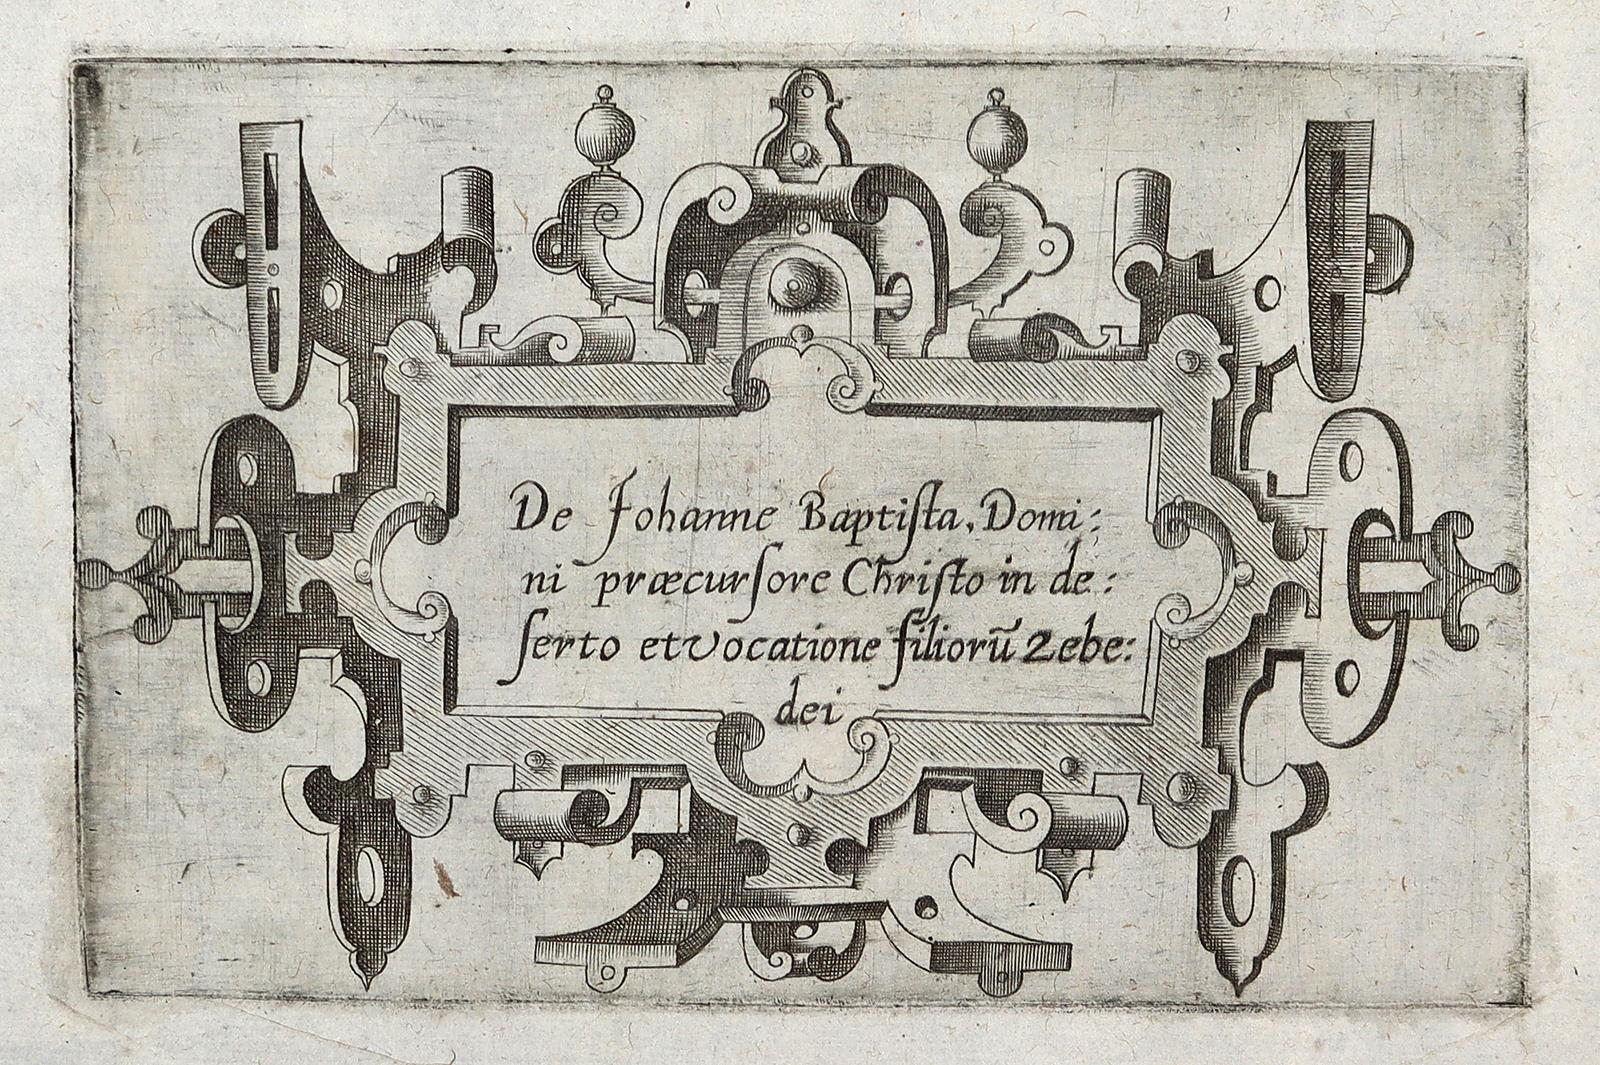 De Johanne Baptiſta, Domi:
ni præcurſore Chriſto in de:
ſerto et vocatione filiorū Zebe:
dei